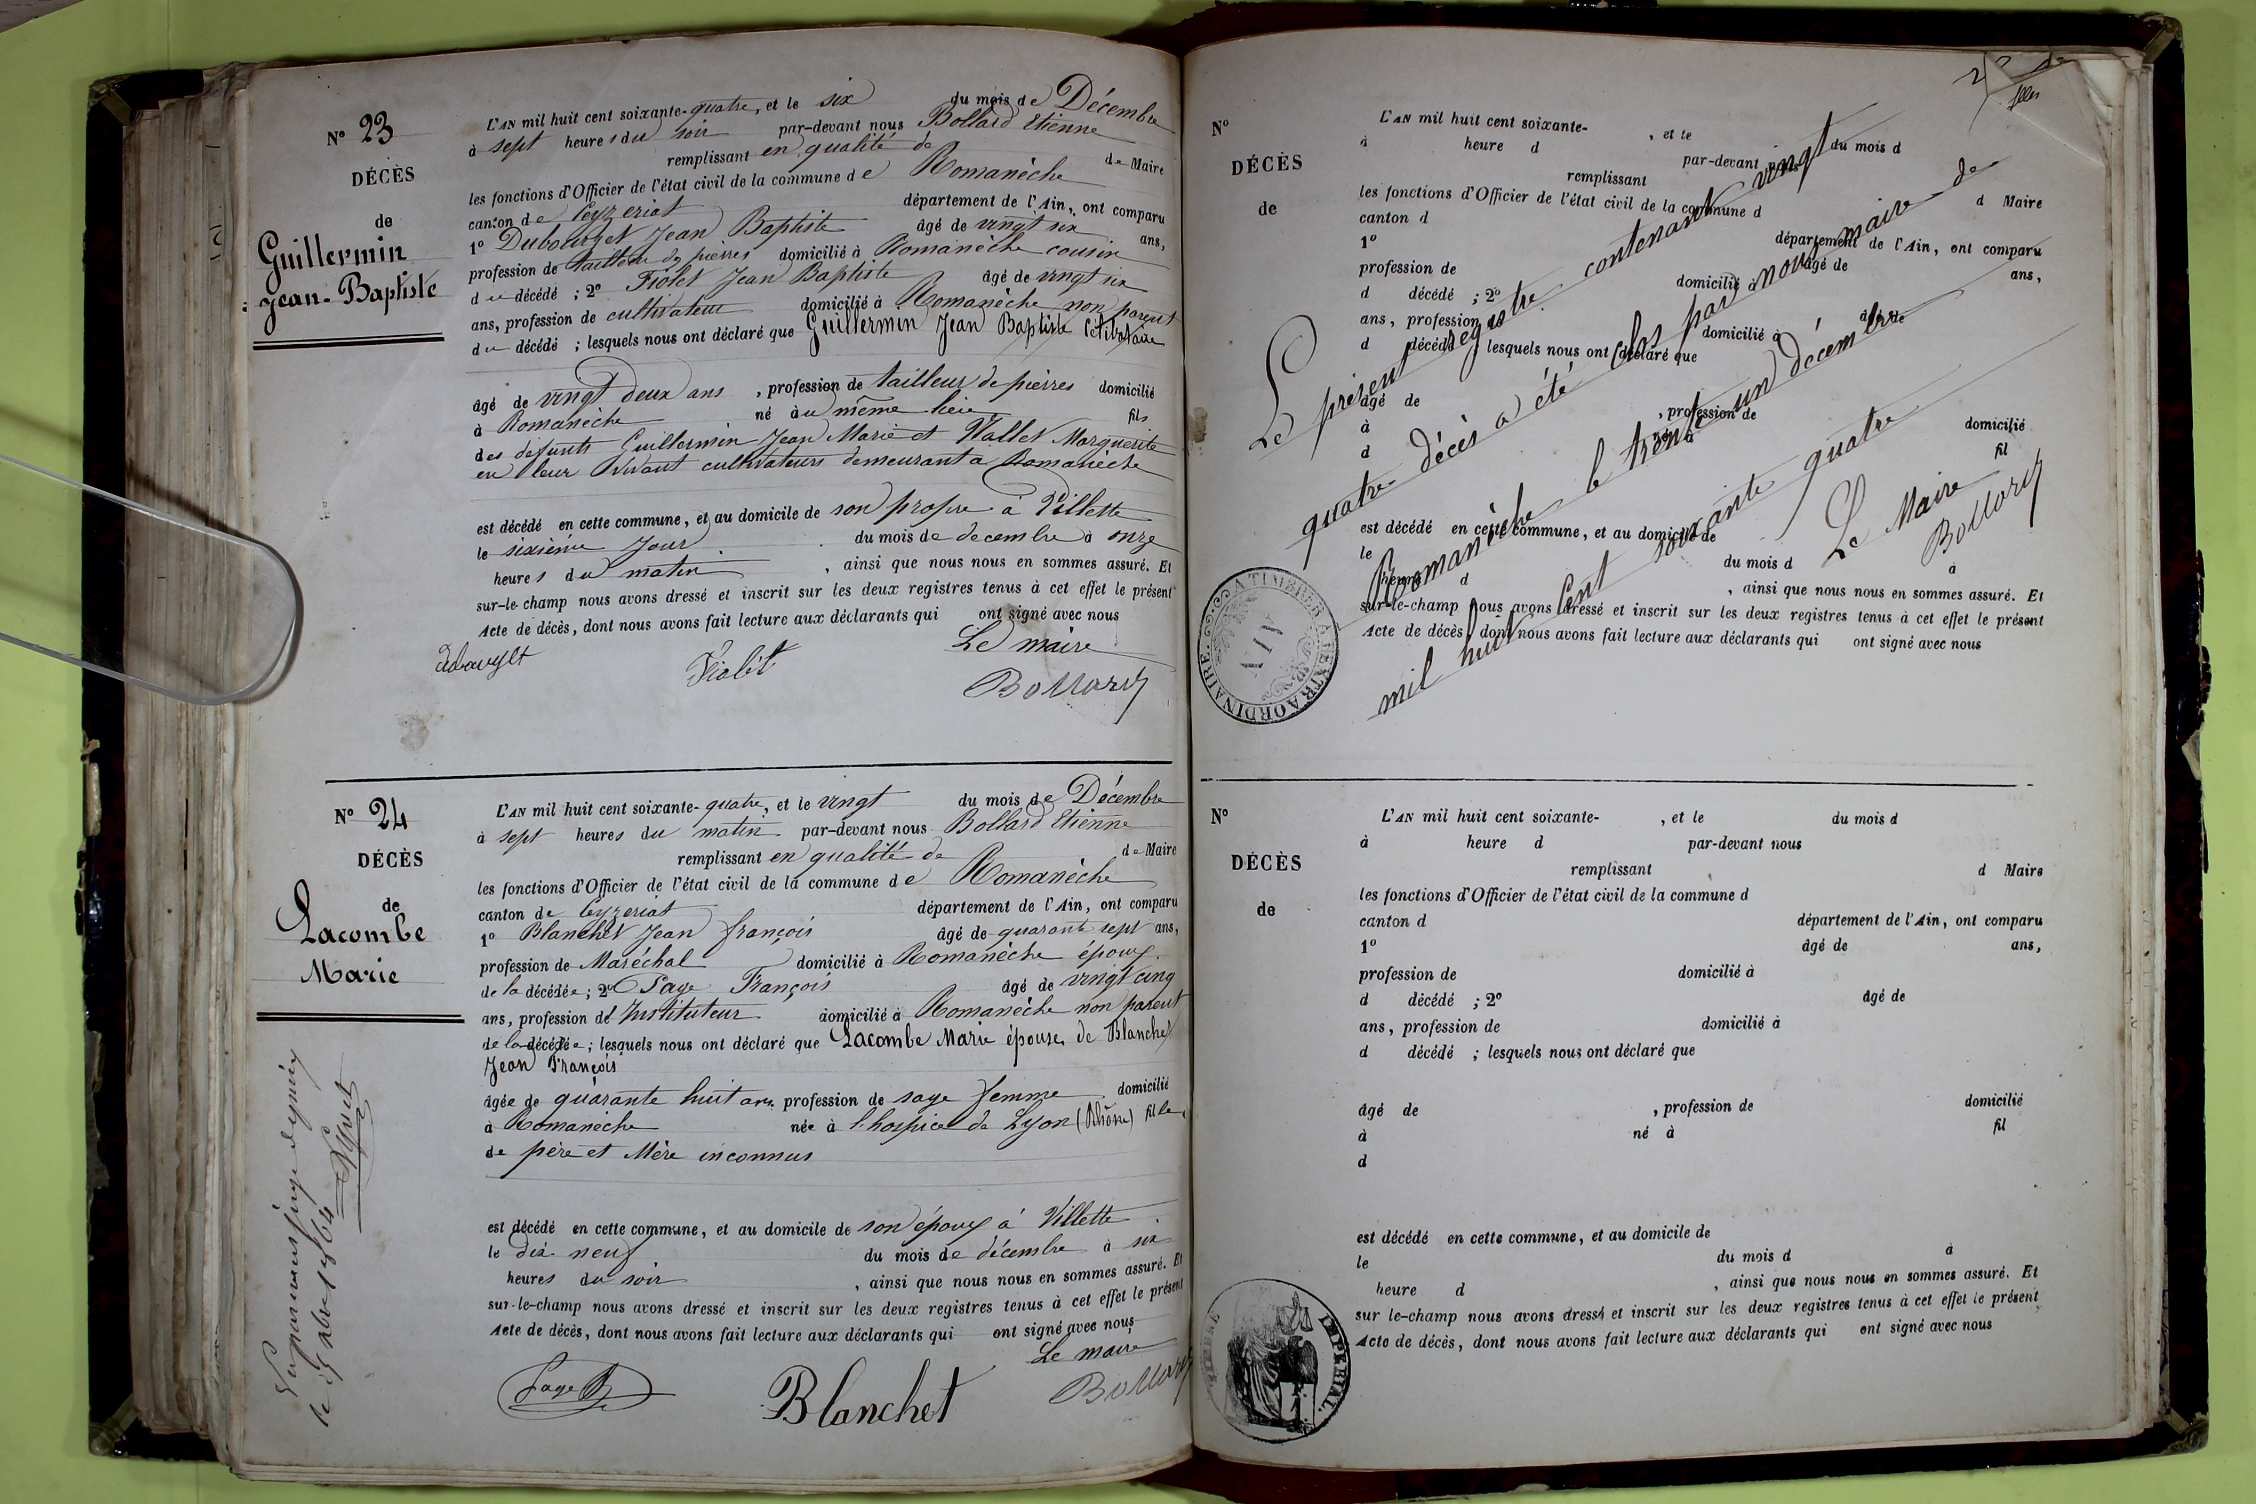 N° 23
DÉCÈS
de
Guillermin
Jean-Baptiste
L'AN mil huit cent soixante-quatre, et le six du mois de Décembre
à sept heures du soir par-devant nous Bollard Etienne
remplissant en qualité de de Maire
les fonctions d'Officier de l'état civil de la commune de Romanèche
canton de Ceyzeriat département de l'Ain, ont comparu
1° Dubourget Jean Baptiste âgé de vingt six ans,
profession de tailleur de pierres domicilié à Romanèche cousin
du décédé ; 2° Fiolet Jean Baptiste âgé de vingt six
ans, profession de cultivateur domicilié à Romanèche non parent
du décédé ; lesquels nous ont déclaré que Guillermin Jean Baptiste Célibataire
âgé de vingt deux ans , profession de tailleur de pierres domicilié
à Romanèche né au même lieu fils
des défunts Guillermin Jean Marie et Wallet Marguerite
en leur vivant cultivateurs demeurant a Romanèche
est décédé en cette commune, et au domicile de son propre à Villette
le sixième jour du mois de decembre à onze
heures du matin , ainsi que nous nous en sommes assuré. Et
sur-le-champ nous avons dressé et inscrit sur les deux registres tenus à cet effet le présent
Acte de décès, dont nous avons fait lecture aux déclarants qui ont signé avec nous
Le maire
Fiolet
Bollard
N° 24
DÉCÈS
de
Lacombe
Marie
L'AN mil huit cent soixante-quatre, et le vingt du mois de Décembre
à sept heures du matin par-devant nous Bollard Etienne
remplissant en qualité de de Maire
les fonctions d'Officier de l'état civil de la commune de Romanèche
canton de Ceyzeriat département de l'Ain, ont comparu
1° Blanchet Jean françois âgé de quarante sept ans,
profession de Maréchal domicilié à Romanèche époux
de la décédée ; 2° Page François âgé de vingt cinq
ans, profession de Instituteur domicilié à Romanèche non parent
de la décédée ; lesquels nous ont déclaré que Lacombe Marie épouse de Blanchet
Jean François
âgée de quarante huit ans profession de sage femme domicilié
à Romanèche née à l'hospice de Lyon (Rhône) fille
de père et Mère inconnus
est décédé en cette commune, et au domicile de son époux à Villette
le dix neuf du mois de décembre à six
heures du soir , ainsi que nous nous en sommes assuré. Et
sur-le-champ nous avons dressé et inscrit sur les deux registres tenus à cet effet le présent
Acte de décès, dont nous avons fait lecture aux déclarants qui ont signé avec nous
Le maire
Page
Blanchet
Bollard
N°
DÉCÈS
de
L'AN mil huit cent soixante- , et le du mois d
à heure d par-devant nous
remplissant d Maire
les fonctions d'Officier de l'état civil de la commune d
canton d département de l'Ain, ont comparu
1° âgé de ans,
profession de domicilié à
d décédé ; 2° âgé de
ans, profession de domicilié à
d décédé ; lesquels nous ont déclaré que
âgé de , profession de domicilié
à né à fil
d
est décédé en cette commune, et au domicile de
le du mois d à
heure d , ainsi que nous nous en sommes assuré. Et
sur-le-champ nous avons dressé et inscrit sur les deux registres tenus à cet effet le présent
Acte de décès, dont nous avons fait lecture aux déclarants qui ont signé avec nous
Le présent registre contenant vingt
quatre décès a été clos par nous maire de
Romanèche le trente un décembre
mil huit cent soixante quatre
Le Maire
Bollard
A TIMBRER A L'EXTRAORDINAIRE.
AIN
N°
DÉCÈS
de
L'AN mil huit cent soixante- , et le du mois d
à heure d par-devant nous
remplissant d Maire
les fonctions d'Officier de l'état civil de la commune d
canton d département de l'Ain, ont comparu
1° âgé de ans,
profession de domicilié à
d décédé ; 2° âgé de
ans, profession de domicilié à
d décédé ; lesquels nous ont déclaré que
âgé de , profession de domicilié
à né à fil
d
est décédé en cette commune, et au domicile de
le du mois d à
heure d , ainsi que nous nous en sommes assuré. Et
sur le-champ nous avons dressé et inscrit sur les deux registres tenus à cet effet le présent
Acte de décès, dont nous avons fait lecture aux déclarants qui ont signé avec nous
TIMBRE IMPERIAL.